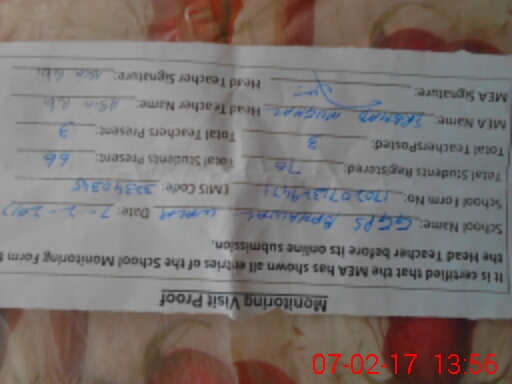 Monitoring Visit Proof
It is certified that the MEA has shown all entries of the School Monitoring Form t
the Head Teacher before its online submission.
School Name: GGPS Date: 7-2-2017
School Form No: EMIS Code: 32340345
Total Students Registered: 70 Total Students Present: 66
Total TeachersPosted: 3 Total Teachers Present: 3
MEA Name: Head Teacher Name: Asia Bibi
MEA Signature: Head Teacher Signature: Asia Bibi
07-02-17 13:56